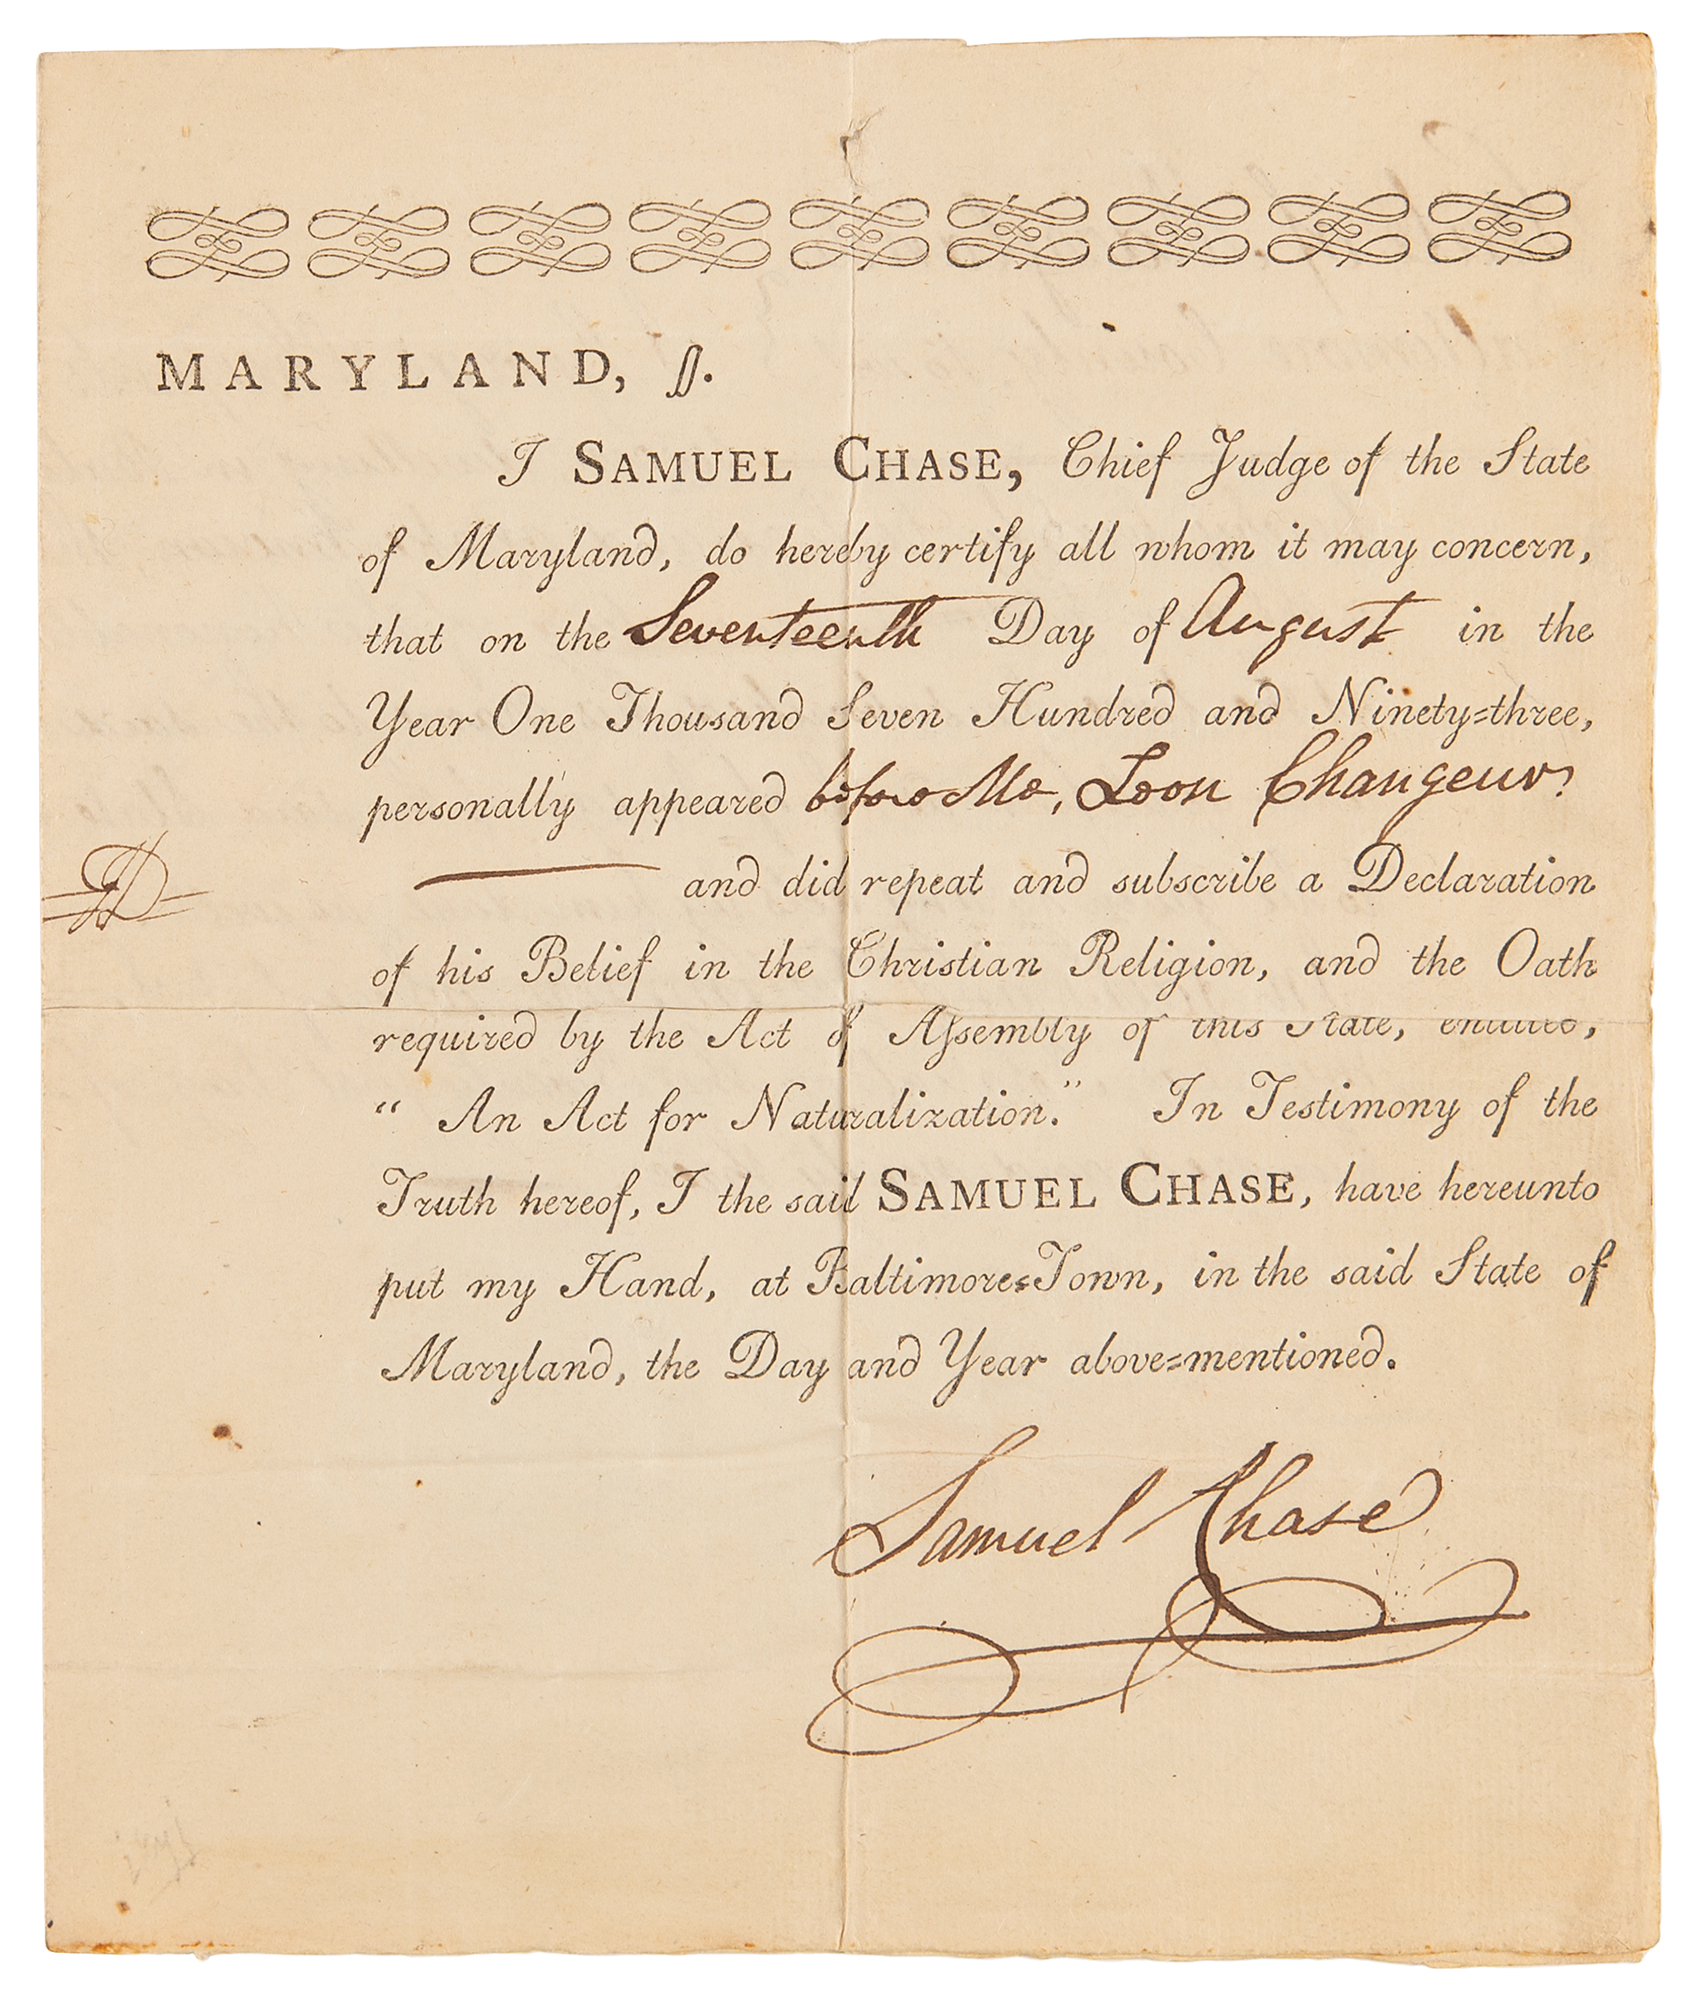 MARYLAND, ss.
I SAMUEL CHASE, Chief Judge of the State
of Maryland, do hereby certify all whom it may concern,
that on the Seventeenth Day of August in the
Year One Thousand Seven Hundred and Ninety=three,
personally appeared before Me, Leon Changeur
and did repeat and subscribe a Declaration
of his Belief in the Christian Religion, and the Oath
required by the Act of Assembly of this State, entitled,
“ An Act for Naturalization.” In Testimony of the
Truth hereof, I the said SAMUEL CHASE, have hereunto
put my Hand, at Baltimore=Town, in the said State of
Maryland, the Day and Year above=mentioned.
Samuel Chase